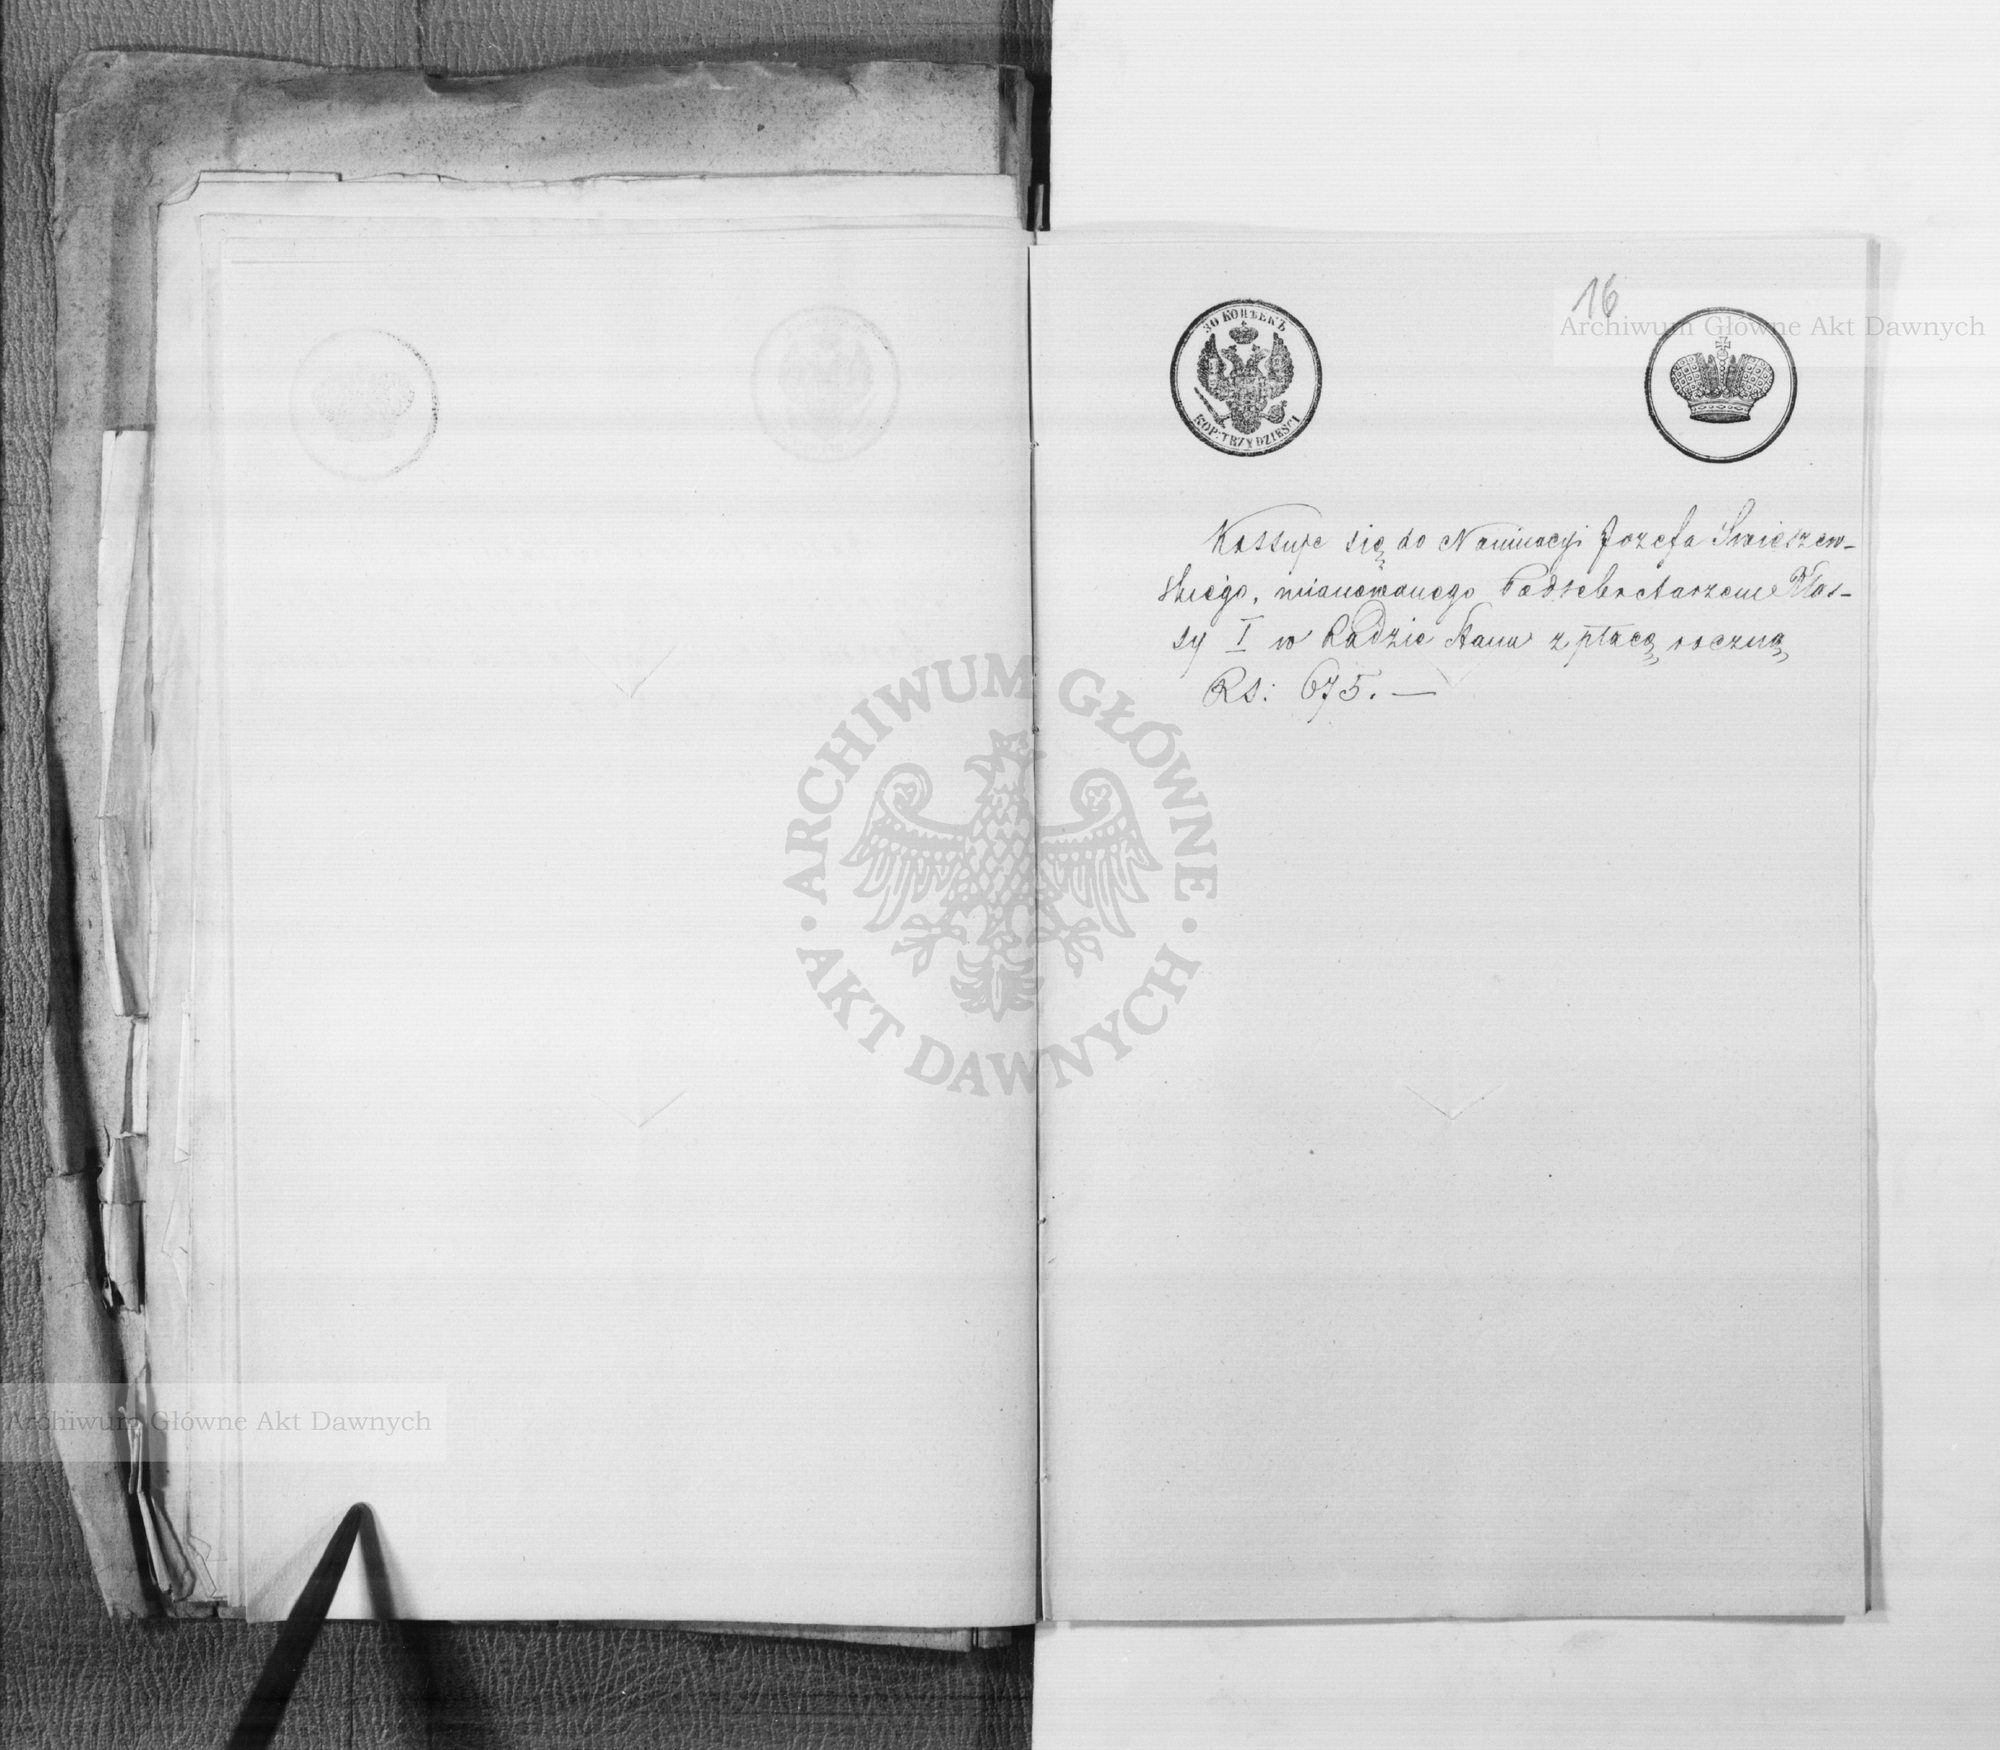 16
30 КОПѢЕКЪ
KOP: TRZYDZIEŚCI
Kassuje się do Nominacyi Jozefa Swieszew-
skiego, mianowanego Podsekretarzem Klas-
sy I w Radzie Stanu z płacą roczną
Rs: 675. —
Archiwum Główne Akt Dawnych
ARCHIWUM GŁÓWNE · AKT DAWNYCH ·
Archiwum Główne Akt Dawnych